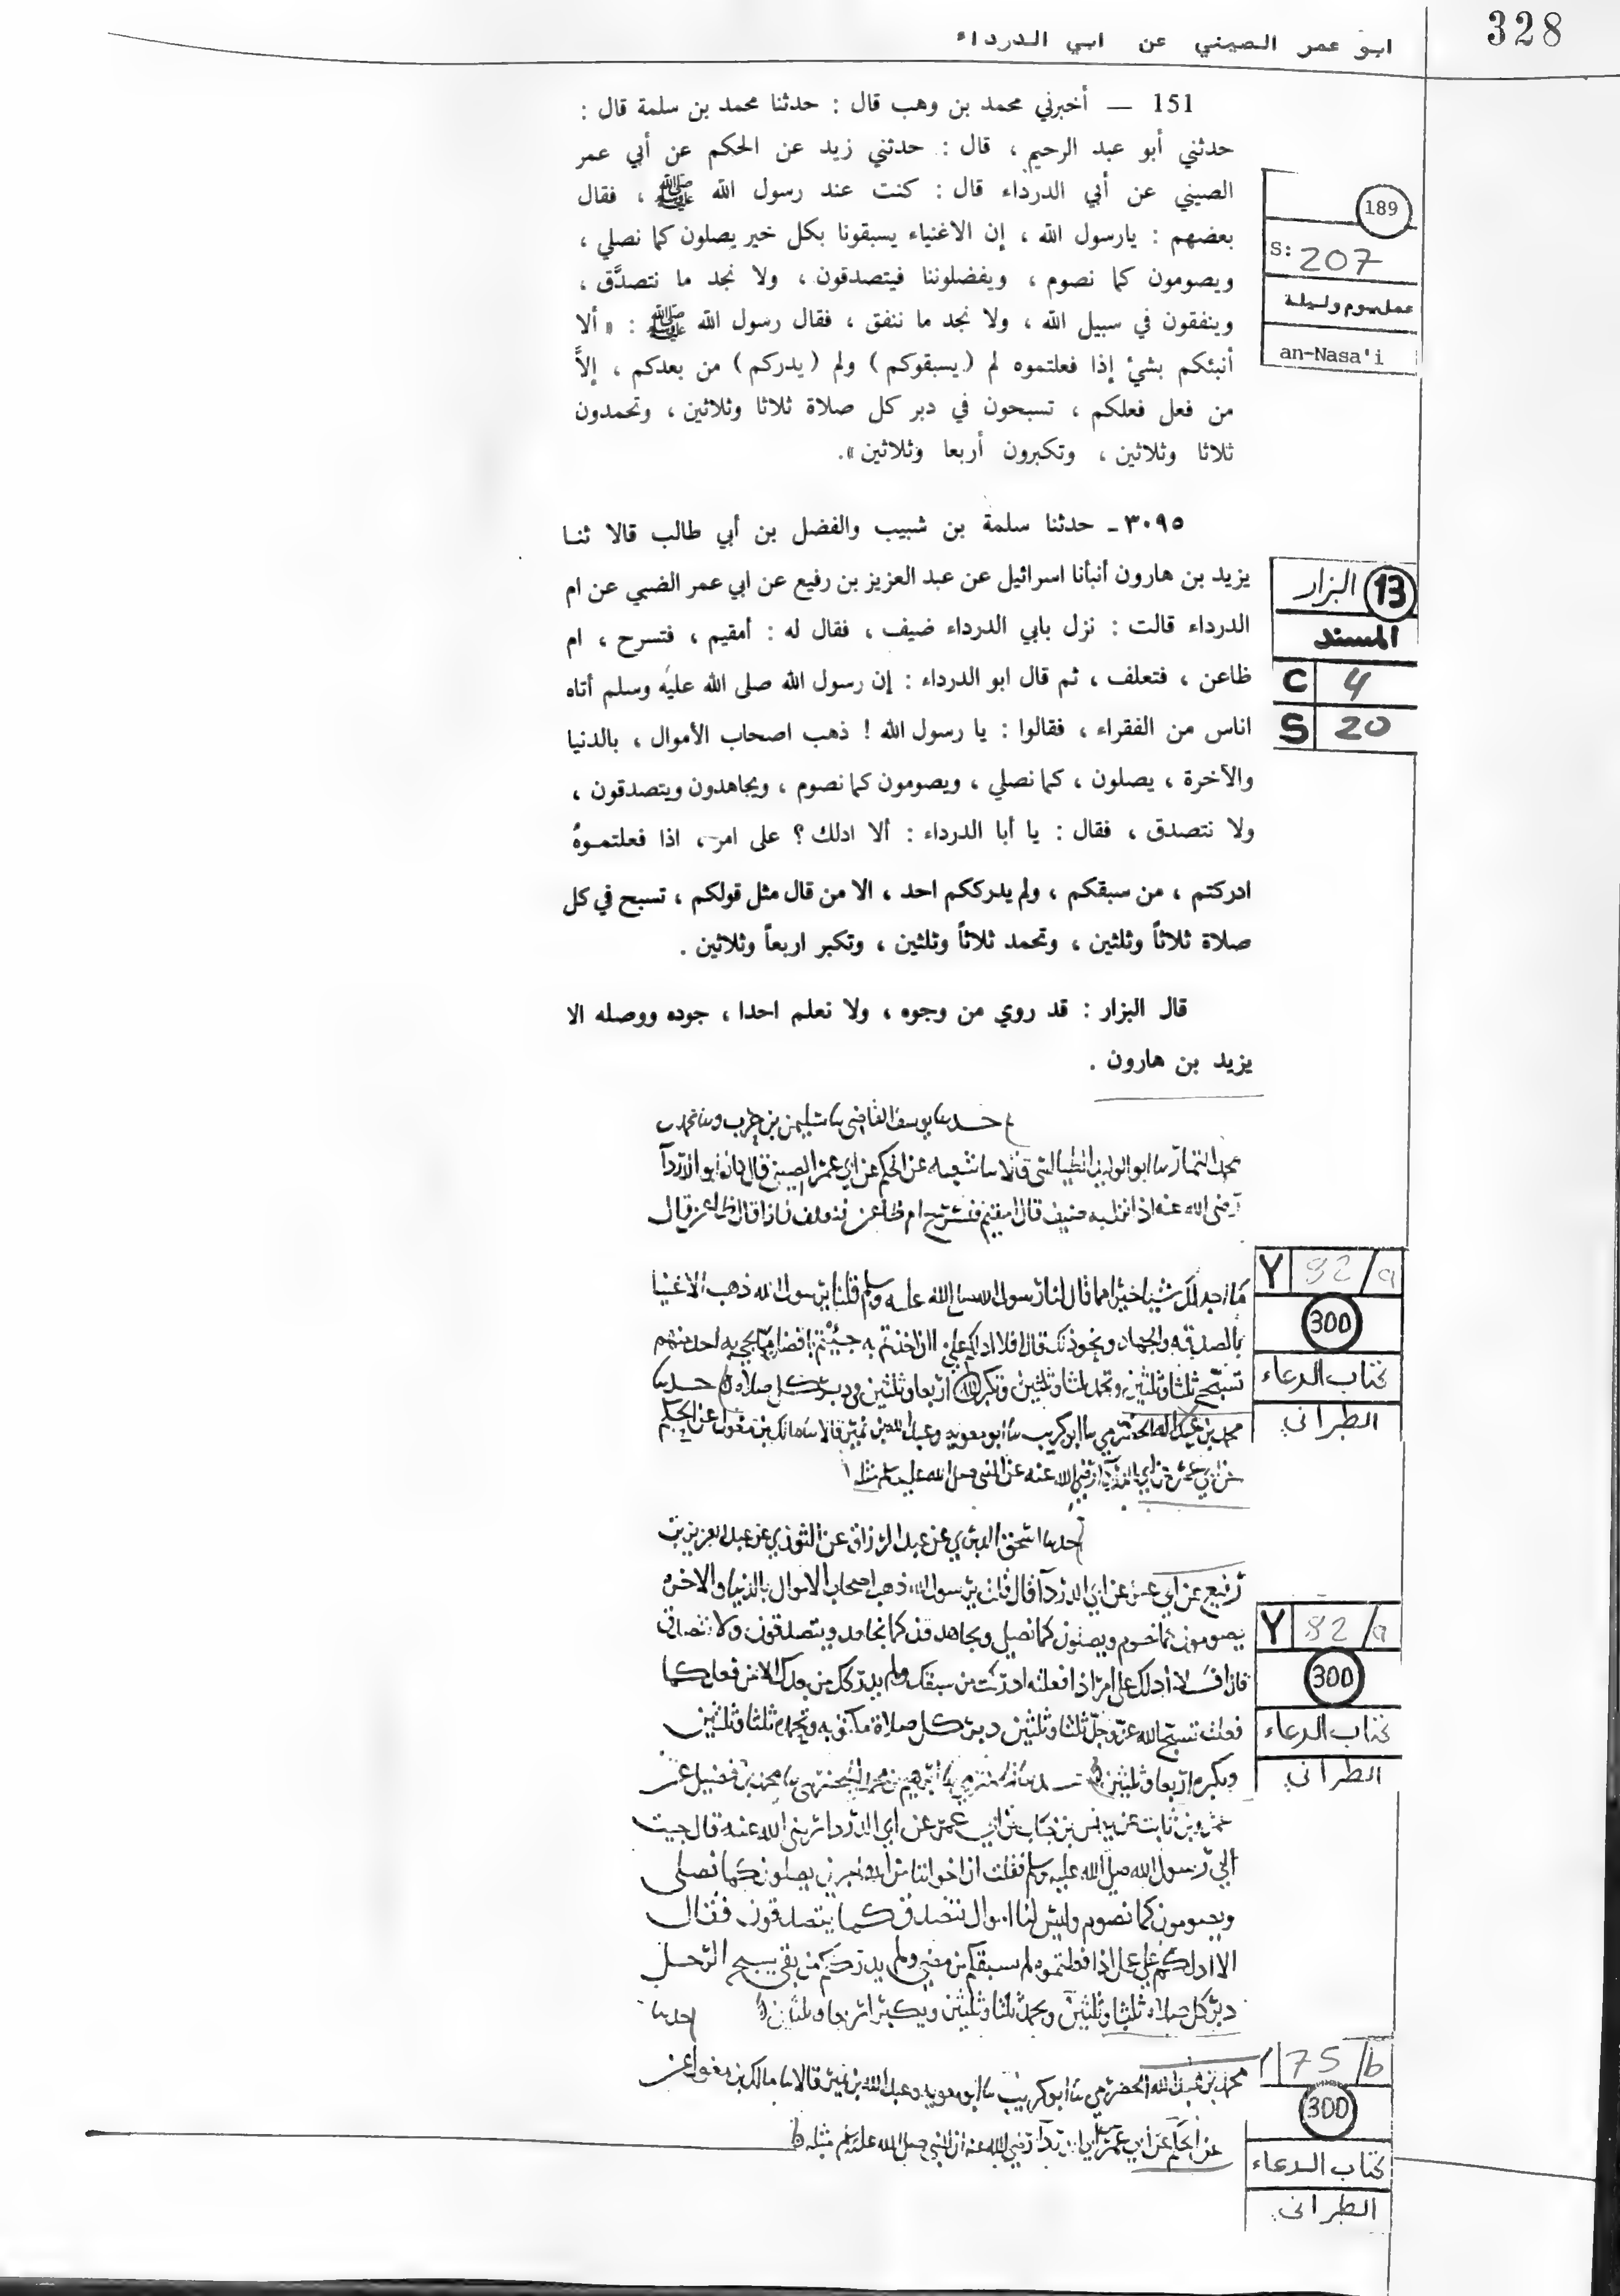 328
ابو عمر الصيني عن ابي الدرداء
151 — أخبرني محمد بن وهب قال : حدثنا محمد بن سلمة قال :
حدثني أبو عبد الرحيم ، قال : حدثني زيد عن الحكم عن أبي عمر
الصيني عن أبي الدرداء قال : كنت عند رسول الله ﷺ ، فقال
بعضهم : يارسول الله ، إن الاغنياء يسبقونا بكل خير يصلون كما نصلي ،
ويصومون كما نصوم ، ويفضلوننا فيتصدقون ، ولا نجد ما نتصدَّق ،
وينفقون في سبيل الله ، ولا نجد ما ننفق ، فقال رسول الله ﷺ : « ألا
أنبئكم بشئ إذا فعلتموه لم ( يسبقوكم ) ولم ( يدركم ) من بعدكم ، إلاَّ
من فعل فعلكم ، تسبحون في دبر كل صلاة ثلاثا وثلاثين ، وتحمدون
ثلاثا وثلاثين ، وتكبرون أربعا وثلاثين ».
189
S: 207
عمل يوم وليلة
an-Nasa'i
٣٠٩٥ ـ حدثنا سلمة بن شبيب والفضل بن أبي طالب قالا ثنا
يزيد بن هارون أنبأنا اسرائيل عن عبد العزيز بن رفيع عن ابي عمر الضبي عن ام
الدرداء قالت : نزل بابي الدرداء ضيف ، فقال له : أمقيم ، فتسرح ، ام
ظاعن ، فتعلف ، ثم قال ابو الدرداء : إن رسول الله صلى الله عليه وسلم أتاه
اناس من الفقراء ، فقالوا : يا رسول الله ! ذهب اصحاب الأموال ، بالدنيا
والآخرة ، يصلون ، كما نصلي ، ويصومون كما نصوم ، ويجاهدون ويتصدقون ،
ولا نتصدق ، فقال : يا أبا الدرداء : ألا ادلك ؟ على امر ، اذا فعلتموهُ
ادركتم ، من سبقكم ، ولم يدرككم احد ، الا من قال مثل قولكم ، تسبح في كل
صلاة ثلاثاً وثلثين ، وتحمد ثلاثاً وثلثين ، وتكبر اربعاً وثلاثين .
قال البزار : قد روي من وجوه ، ولا نعلم احدا ، جوده ووصله الا
يزيد بن هارون .
13 البزار
المسند
C 4
S 20
حدسا يوسف القاضي سا سليمن بن حرب وسا محمد بن
محمد التمار سا ابو الوليد الطيالسي قالا سا شعبه عن الحكم عن ابي عمر الصيني قال كان ابو الدردآ
رضي الله عنه اذا نزل به ضيف قال امقيم فنسرح ام ظاعن فنعلف فاذا قال ظاعن قال
ما اجد لك شيا خيرا مما قال لنا رسول الله صلى الله عليه وسلم قلنا يرسول الله ذهب الاغنيا
بالصدقه والجهاد ونحو ذلك قال افلا ادلكم على
تسبح ثلثا وثلثين وتحمد ثلثا وثلثين وتكبر الله اربعا وثلثين في دبر كل صلاه حدسا
محمد بن عبد الله الحضرمي سا ابو كريب سا ابو معويه وعبد الله بن نمير قالا سا مالك بن مغول عن الحكم
عن ابي عمر عن ابي الدردآ رضي الله عنه عن النبي صلى الله عليه وسلم مثله
Y 82/a
300
كتاب الدعاء
الطبراني
حدسا اسحق الدبري عن عبد الرزاق عن الثوري عن عبد العزيز بن
رفيع عن ابي عمر عن ابي الدردآ قال قلت يرسول الله ذهب اصحاب الاموال بالدنيا والاخره
يصومون كما نصوم ويصلون كما نصلي ويجاهدون كما نجاهد ويتصدقون ولا نتصدق
قال افلا ادلك على امر اذا فعلته ادركت من سبقك ولم يدركك من بعدك الا من فعل كما
فعلت تسبح الله عز وجل ثلثا وثلثين دبر كل صلاة مكتوبه وتحمده ثلثا وثلثين
وتكبره اربعا وثلثين سا محمد بن فضيل عن
عن ابي عمر عن ابي الدردا رضي الله عنه قال جيت
الى رسول الله صلى الله عليه وسلم فقلت ان اخواننا من المهاجرين يصلون كما نصلي
ويصومون كما نصوم وليس لنا اموال نتصدق كما يتصدقون فقال
الا ادلكم على عمل اذا فعلتموه لم يسبقكم من مضى ولم يدرككم من بقي يسبح الرجل
دبر كل صلاه ثلثا وثلثين ويحمد ثلثا وثلثين ويكبر اربعا وثلثين حدسا
Y 82/a
300
كتاب الدعاء
الطبراني
محمد بن عبد الله الحضرمي سا ابو كريب سا ابو معويه وعبد الله بن نمير قالا سا مالك بن مغول عن
عن الحكم عن ابي عمر عن ابي الدردآ رضي الله عنه ان النبي صلى الله عليه وسلم مثله
75/b
300
كتاب الدعاء
الطبراني